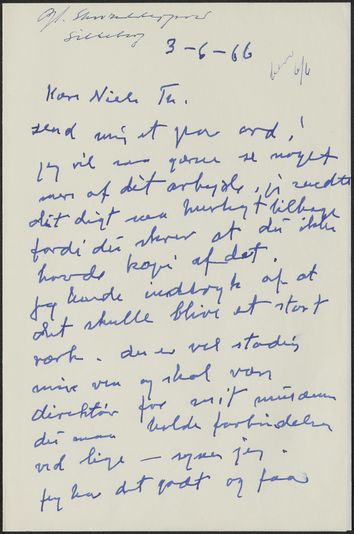 Gl. Skovridergaard
Silkeborg
3-6-66
6/6
Kære Niels Th.
send mig et par ord!
jeg vil saa gerne se noget
mer af dit arbejde, jeg sendte
dit digt saa hurtigt tilbage
fordi du skrev at du ikke
havde kopi af det.
jeg havde indtryk af at
det skulle blive et stort
værk. du er vel stadig
min ven og skal være
direktør for mit museum
du maa holde forbindelsen
ved lige – synes jeg.
jeg har det godt og faar